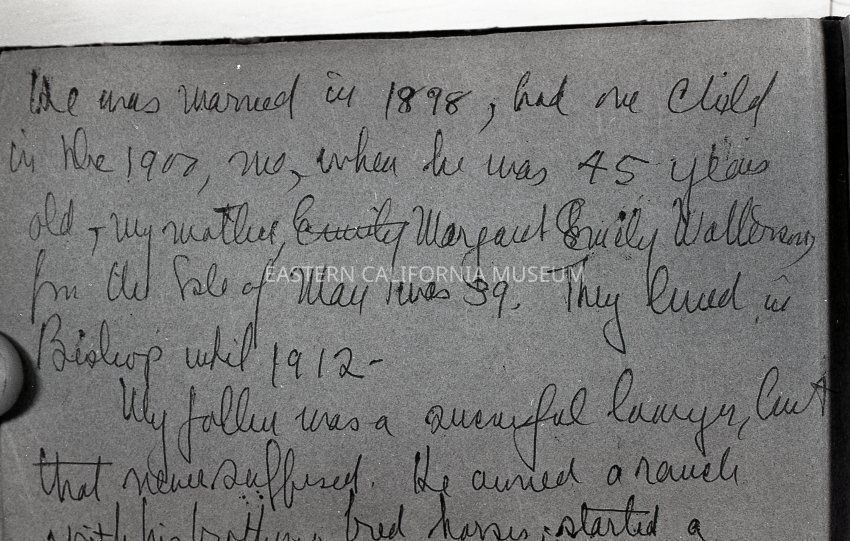 He was married in 1898, had one child
in the 1900, me, when he was 45 years
old, my mother, Emily Margaret Emily Watterson,
from the Isle of Man was 39. They lived in
EASTERN CALIFORNIA MUSEUM
Bishop until 1912-
My father was a successful lawyer, but
that never sufficed. He owned a ranch
with his brother, bred horses, started a